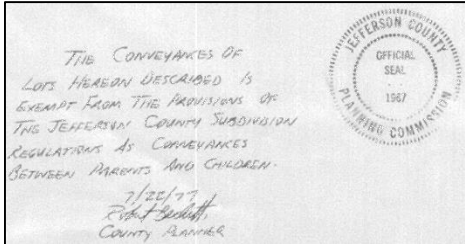 THE CONVEYANCES OF
LOTS HEREON DESCRIBED IS
EXEMPT FROM THE PROVISIONS OF
THE JEFFERSON COUNTY SUBDIVISION
REGULATIONS AS CONVEYANCES
BETWEEN PARENTS AND CHILDREN.
7/22/77
COUNTY PLANNER
JEFFERSON COUNTY
OFFICIAL
SEAL
1967
PLANNING COMMISSION